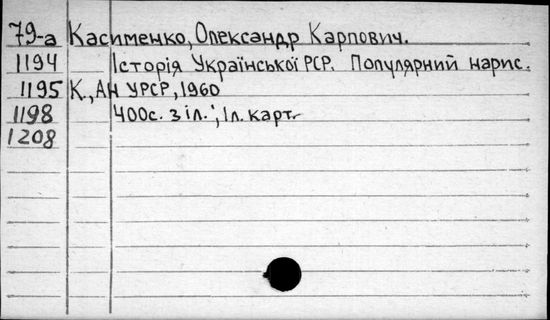 79-а Касименко, Олександр Карпович.
1194 Історія Української РСР. Популярний нарис.
1195 К., Ан УРСР, 1960
1198 400с. з іл.; 1л. карт.
1208